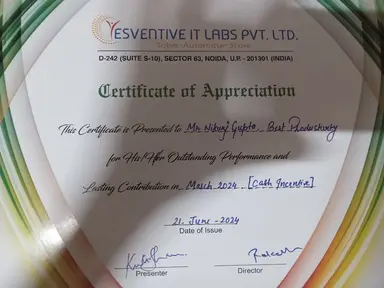 YESVENTIVE IT LABS PVT. LTD.
D-242 (SUITE S-10), SECTOR 63, NOIDA, U.P. - 201301 (INDIA)
Certificate of Appreciation
This Certificate is Presented to Mr. Niburj Gupta - Best Productivity
for His/Her Outstanding Performance and
Lasting Contribution in March 2024 [Cash Incentive]
21. June - 2024
Date of Issue
Presenter
Director